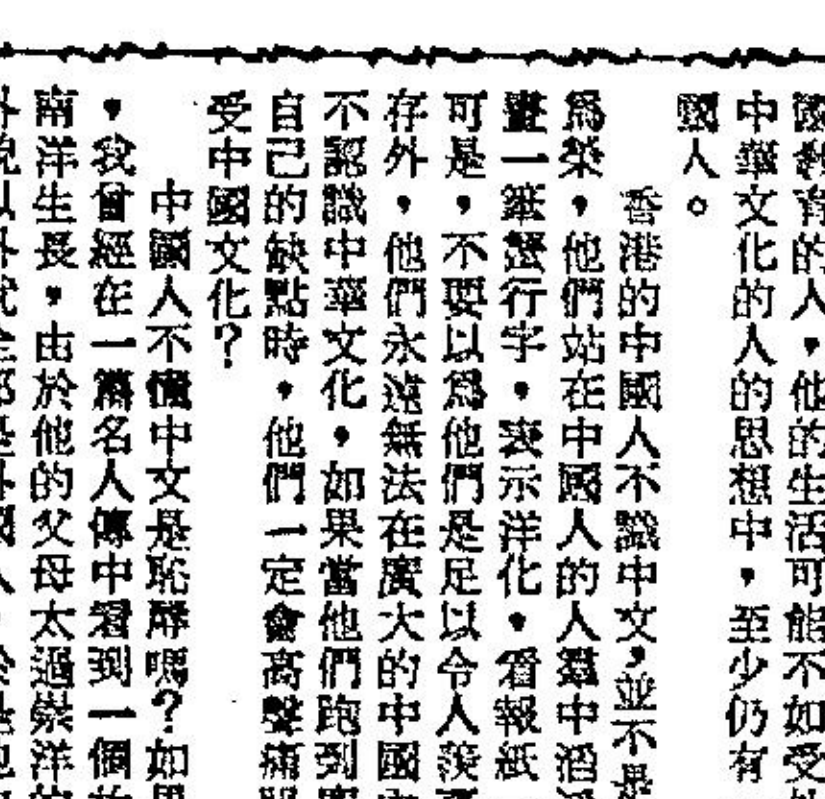 國教育的人，他的生活可能不如受
中華文化的人的思想中，至少仍有
國人。
香港的中國人不識中文，並不是
爲榮，他們站在中國人的人羣中
畫一紙蟹行字，表示洋化，看報紙
可是，不要以爲他們是足以令人羨
存外，他們永遠無法在廣大的中國
不認識中華文化，如果當他們跑到
自己的缺點時，他們一定會高聲痛
受中國文化？
中國人不懂中文是恥辱嗎？如
，我曾經在一篇名人傳中看到一個
南洋生長，由於他的父母太過崇洋的